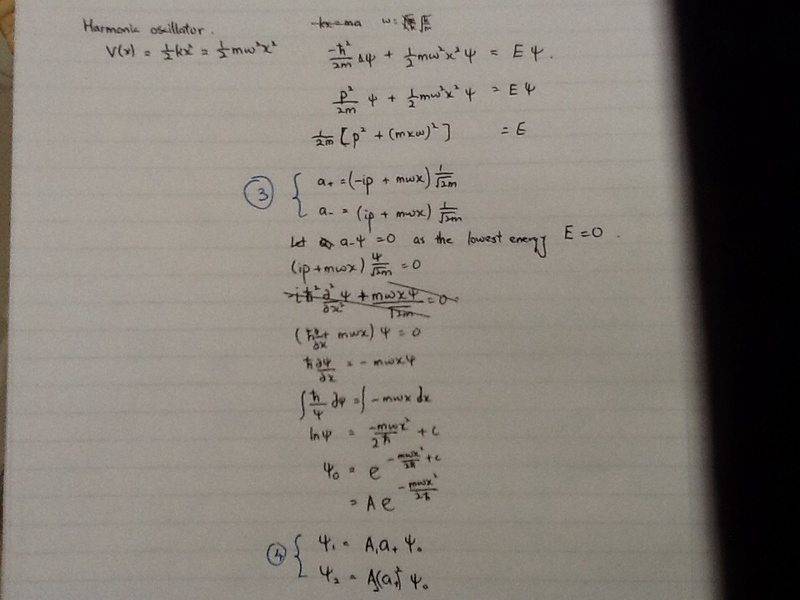 Harmonic oscillator.
V(x) = ½kx² = ½mω²x²
ω = √(k/m)
-ħ²/2m Δψ + ½mω²x²ψ = Eψ.
p²/2m ψ + ½mω²x²ψ = Eψ
1/2m [p² + (mxω)²] = E
③ { a₊ = (-ip + mωx) 1/√2m
a₋ = (ip + mωx) 1/√2m
Let a₋ψ = 0 as the lowest energy E = 0.
(ip + mωx) ψ/√2m = 0
iħ² ∂²/∂x² ψ + mωxψ/√2m = 0
(ħ∂/∂x + mωx) ψ = 0
ħ∂ψ/∂x = - mωxψ
∫ ħ/ψ ∂ψ = ∫ - mωx dx
lnψ = -mωx²/2ħ + c
ψ₀ = e^(-mωx²/2ħ + c)
= A e^(-mωx²/2ħ)
④ { ψ₁ = A₁a₊ψ₀
ψ₂ = A₂(a₊)²ψ₀